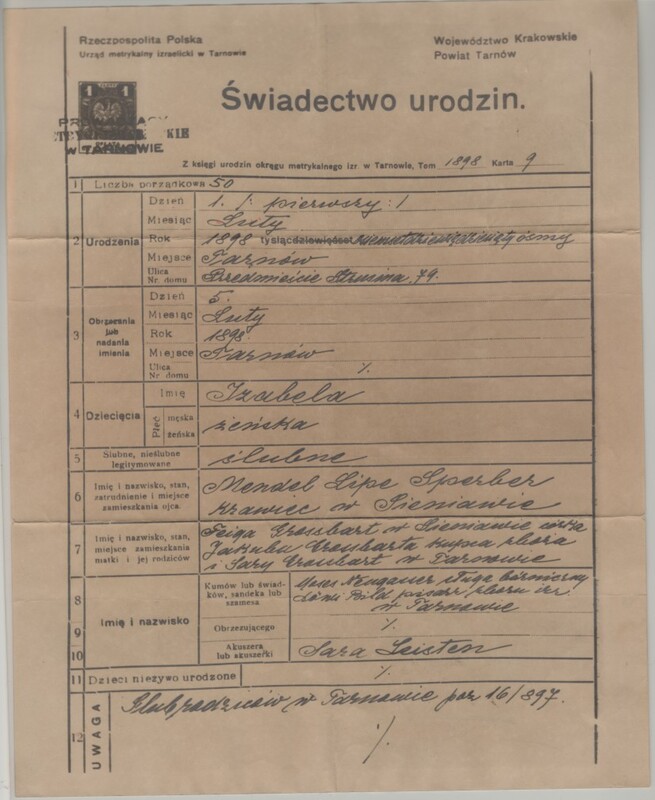 Rzeczpospolita Polska
Urząd metrykalny izraelicki w Tarnowie
Województwo Krakowskie
Powiat Tarnów
1 1
Świadectwo urodzin.
w TARNOWIE
Z księgi urodzin okręgu metrykalnego izr. w Tarnowie, Tom 1898 Karta 9
1 Liczba porządkowa 50
2 Urodzenia
Dzień 1. /: pierwszy :/
Miesiąc Luty
Rok 1898 tysiącdziewięćset ośmy
Miejsce Tarnów
Ulica Nr. domu Przedmieście Strusina, 79.
3 Obrzezania lub nadania imienia
Dzień 5.
Miesiąc Luty
Rok 1898.
Miejsce Tarnów
Ulica Nr. domu %
4 Dziecięcia
Imię Izabela
Płeć męska żeńska żeńska
5 Ślubne, nieślubne legitymowane ślubne
6 Imię i nazwisko, stan, zatrudnienie i miejsce zamieszkania ojca.
Mendel Lipe Sperber
krawiec w Sieniawie
7 Imię i nazwisko, stan, miejsce zamieszkania matki i jej rodziców
Feiga Grossbart w Sieniawie córka
Jakuba Grosbarta kupca zboża
i Sary Grosbart w Tarnowie
Imię i nazwisko
8 Kumów lub świadków, sandeka lub szamesa
Moses Neugauer sługa bóżniczny
pisarz zboru izr.
w Tarnowie
9 Obrzezującego %
10 Akuszera lub akuszerki Sara Leisten
11 Dzieci nieżywo urodzone %
12 UWAGA
Ślub rodziców w Tarnowie poz 16/897.
%